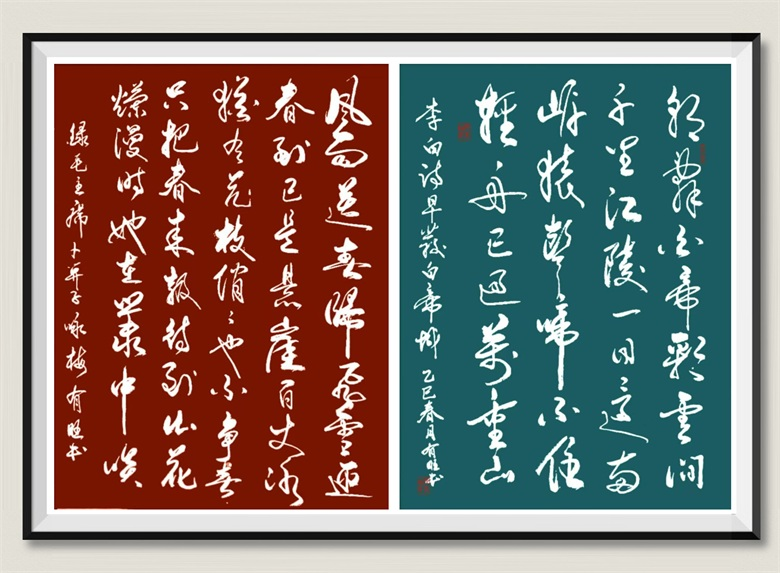 朝辭白帝彩雲间
千里江陵一日還兩
岸猿聲啼不住
輕舟已過萬重山
李白诗早發白帝城 乙巳春月有旺书
风雨送春歸飛雪迎
春到已是悬崖百丈冰
猶有花枝俏俏也不争春
只把春来报待到山花
爛漫时她在叢中笑
録毛主席卜算子咏梅有旺书